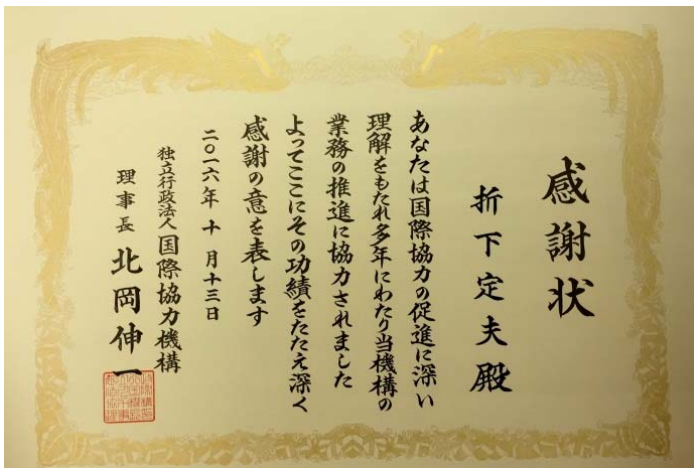 感謝状
折下定夫殿
あなたは国際協力の促進に深い
理解をもたれ多年にわたり当機構の
業務の推進に協力されました
よってここにその功績をたたえ深く
感謝の意を表します
二〇一六年十月十三日
独立行政法人国際協力機構
理事長 北岡伸一